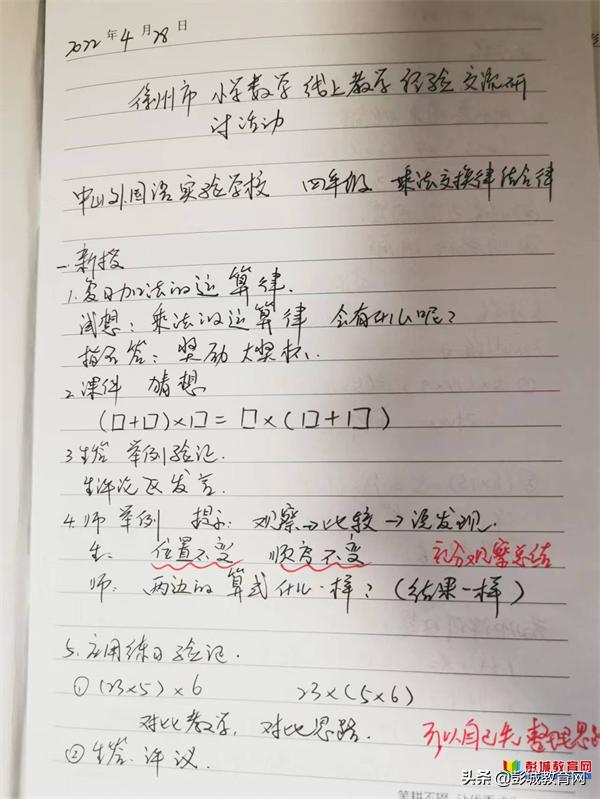 2022年4月28日
徐州市 小学数学 线上教学 经验交流研
讨活动
中山外国语实验学校 四年级 乘法交换律结合律
一.新授
1.复习加法的运算律.
试想: 乘法的运算律 会有什么呢?
指名答: 奖励大奖杯.
2.课件 猜想
(□+□)×□=□×(□+□)
3.生答 举例验证.
生评论区发言.
4.师 举例 提示: 观察→比较→说发现.
生: 位置不变 顺序不变 充分观察总结
师: 两边的算式什么一样? (结果一样)
5.应用练习验证.
①(23×5)×6 23×(5×6)
对比教学, 对比思路. 可以自己先整理思
②生答.评议.
彭城教育网
头条 @彭城教育网